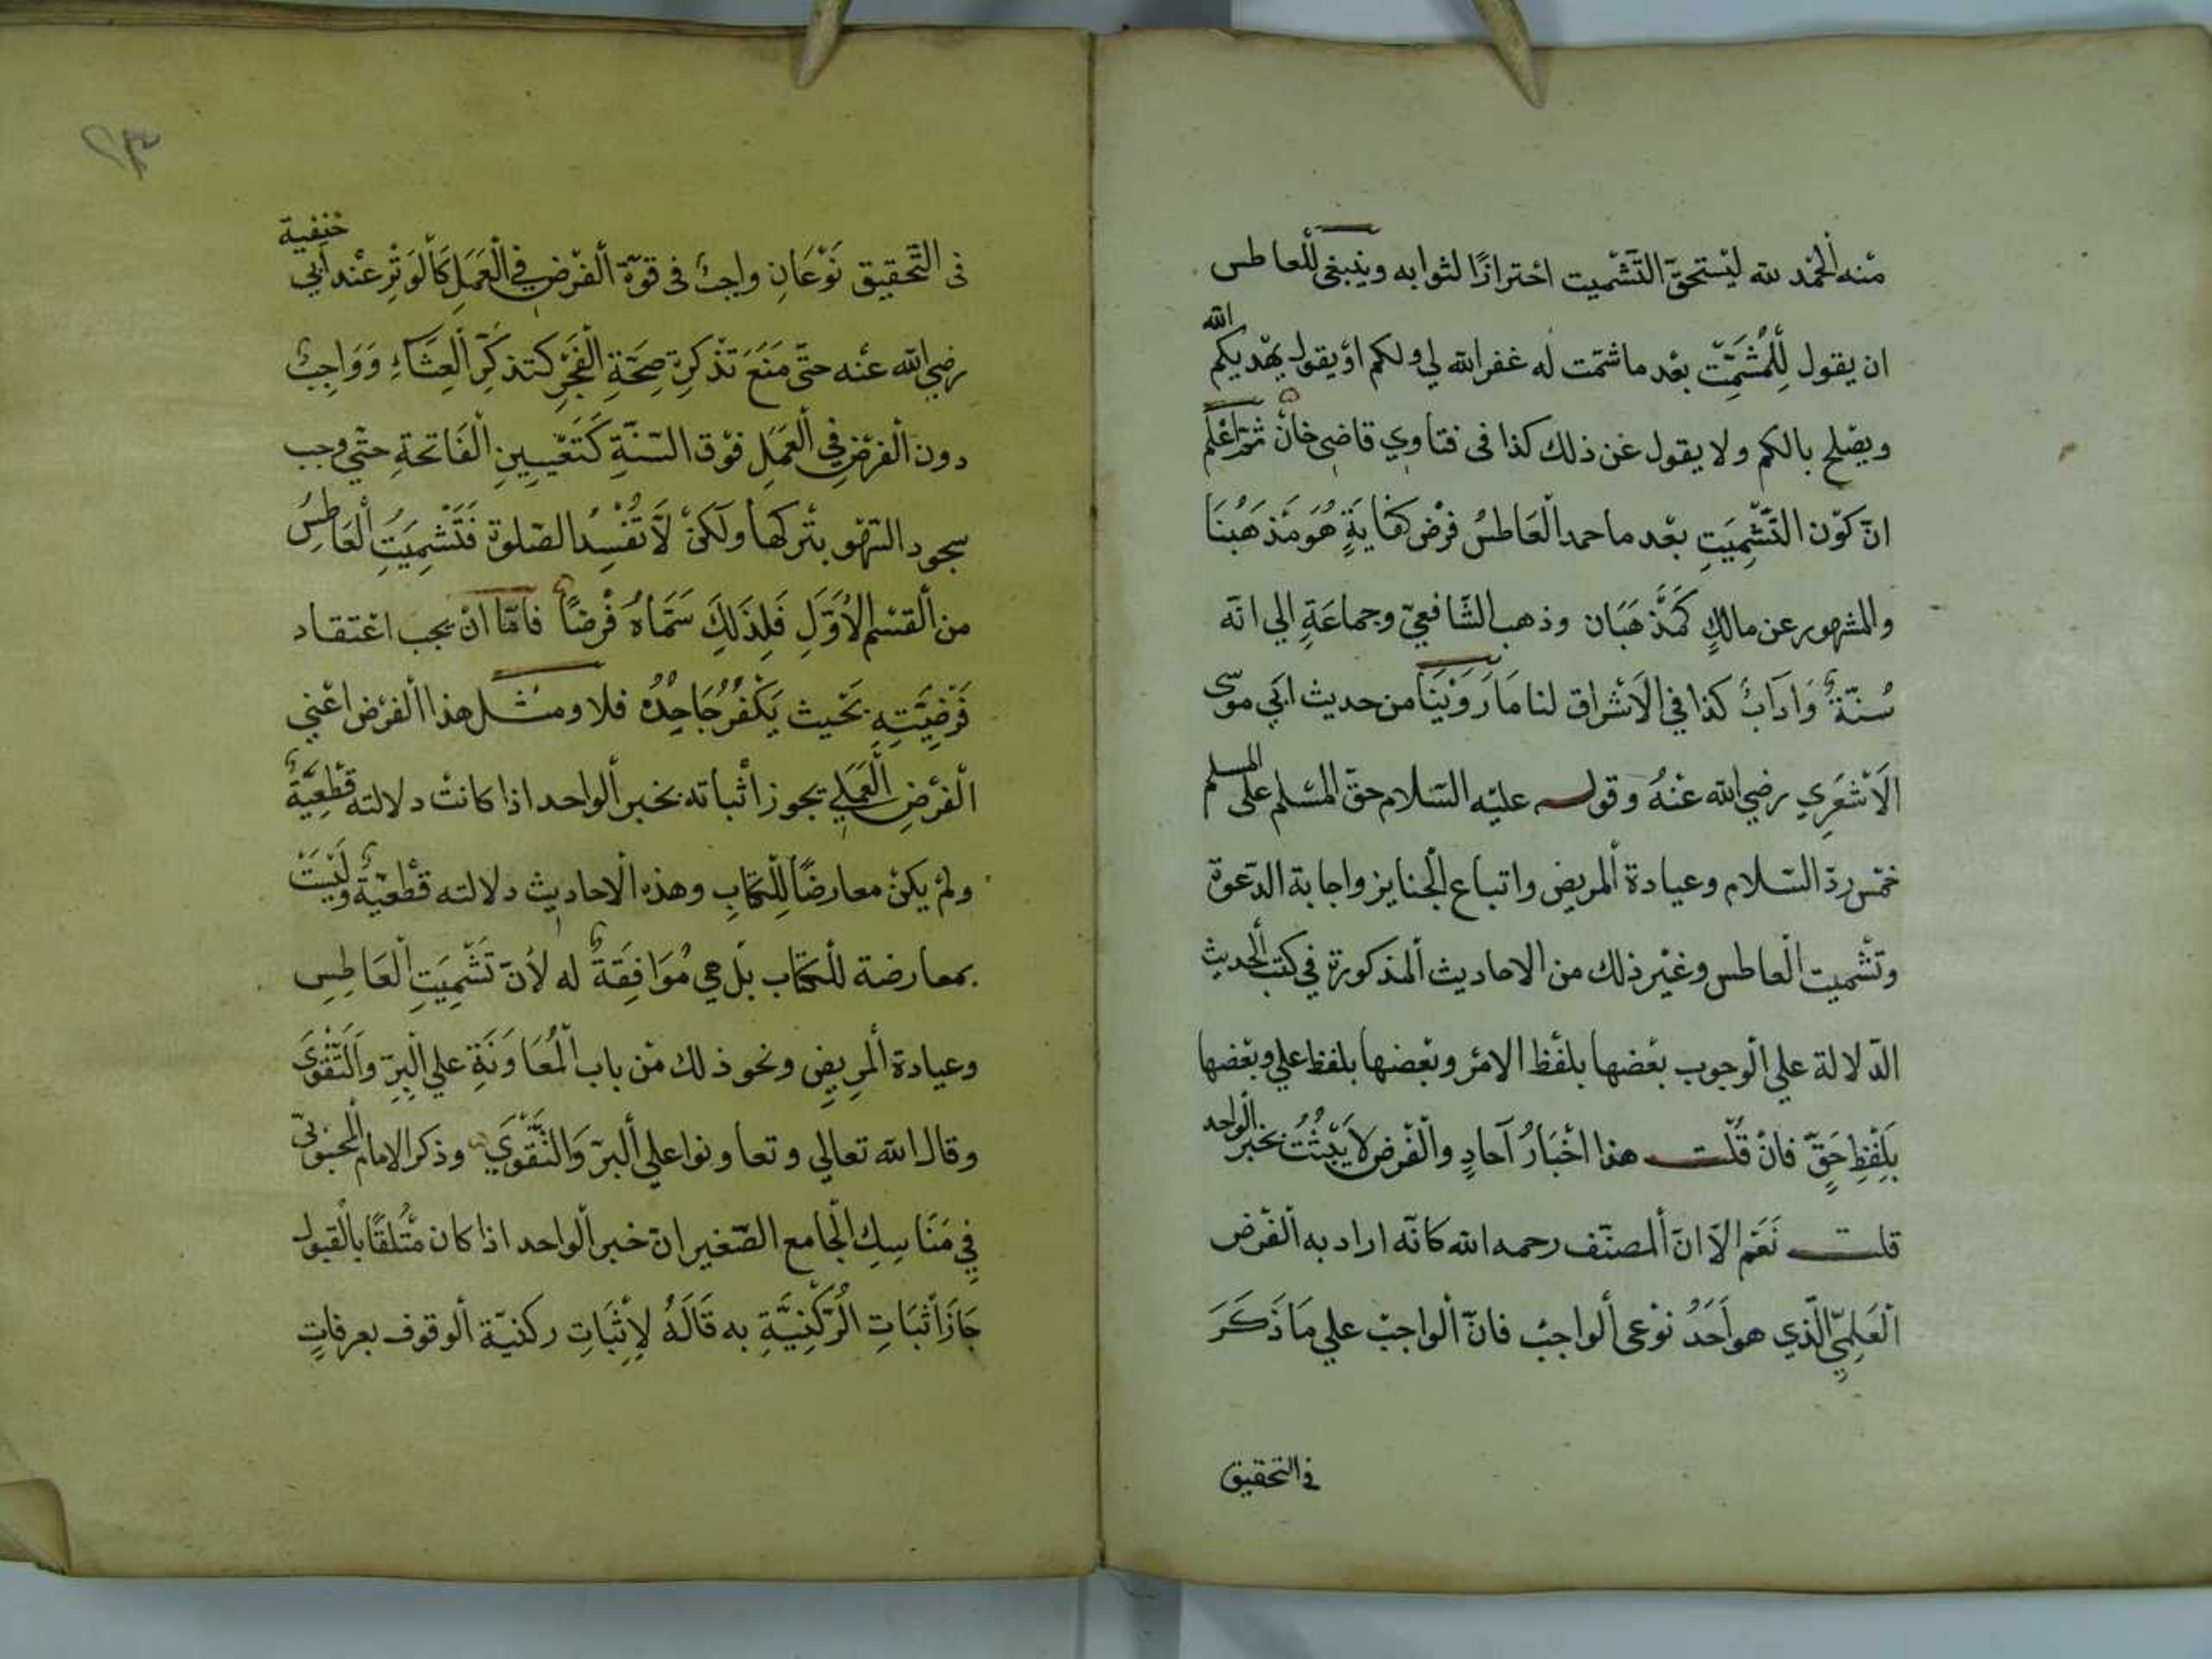 منه الحمد لله ليستحقّ التّشميت احترازًا لثوابه وينبغي للعاطس
ان يقول للمُشَمِّت بعد ما شمّت له غفر الله لي ولكم او يقول يهديكم الله
ويصلح بالكم ولا يقول غير ذلك كذا في فتاوي قاضي خان ثمّ اعلم
انّ كون التّشميت بعد ما حمد العاطسُ فرض كفايةٍ هُوَ مَذهبُنَا
والمشهور عن مالكٍ كمذهبان وذهب الشّافعيّ وجماعةٍ الي انّه
سُنّةٌ وَادَابٌ كذا في الاشراق لنا مَا رَوَيْنَا من حديث ابي موسى
الاَشْعَرِي رضي الله عنهُ وقوله عليه السّلام حقّ المسلم على المسلم
خمس ردّ السّلام وعيادة المريض واتباع الجنايز واجابة الدّعوة
وتشميت العاطس وغير ذلك من الاحاديث المذكورة في كتب الحديث
الدّلالة علي الوجوب بعضها بلفظ الامر وبعضها بلفظ علي وبعضها
بلَفظِ حَقٍّ فان قُلت هذا اخْبَارُ آحادٍ والفرض لا يَثْبُتُ بخبر الواحد
قلت نَعَم الاّ انّ المصنّف رحمه الله كانّه اراد به الفرض
العَلِميّ الّذي هو اَحَدُ نوعى الواجب فانّ الواجب علي مَا ذَكَرَ
في التحقيق
في التّحقيق نَوْعَانِ واجبٌ في قوّة الفرض في العَمَلِ كَالْوَتِرِ عند ابي حنيفية
رضي الله عنه حتّى مَنَعَ تَذكرِهِ صِحَّةِ الفَجْرِ كتذكّرِ العِشَاءِ وَوَاجِبٌ
دون الفرض في العَمَلِ فوق السّنّةِ كَتَعْيِينِ الفَاتحةِ حتّي وجب
سجود السّهو بتركها ولكنْ لاَ تَفْسُدُ الصّلوة فَتَشْمِيَتُ العَاطِسُ
من القسم الاَوَّلِ فَلِذَلِكَ سَمَّاهُ فَرضًا فامّا انْ يجب اعتقاد
فَرْضِيَّتِهِ بَحْيث يَكْفُرُ جَاحِدُهُ فلا ومثل هذا الفرض اعني
الفَرْضِ العَمَلي يجوز أثباته بخبر الواحد اذا كانت دلالته قَطْعِيَّةً
ولم يكن معارضًا للكتابِ وهذه الاحاديث دلالته قطعيّةٌ وليَسَتْ
بمعارضة للكتاب بل هي مُوَافِقَةٌ له لأنّ تَشْمِيَتِ العَاطِسِ
وعيادة المريضِ ونحو ذلك من باب المُعَاوَنَةِ علي البِرِّ والتّقْوَى
وقال الله تعالي وتعاونوا علي البرّ وَالتَّقْوَي وذكر الامام المحبوبيّ
فِي مَنَاسِكِ الجامع الصّغير انّ خبر الواحد اذا كان مُتلقًا بالقبول
جَازَ أثبَاتِ الرّكْنِيَّةِ به قَالَهُ لاِثْبَاتِ ركنيّة الوقوف بعرفاتٍ